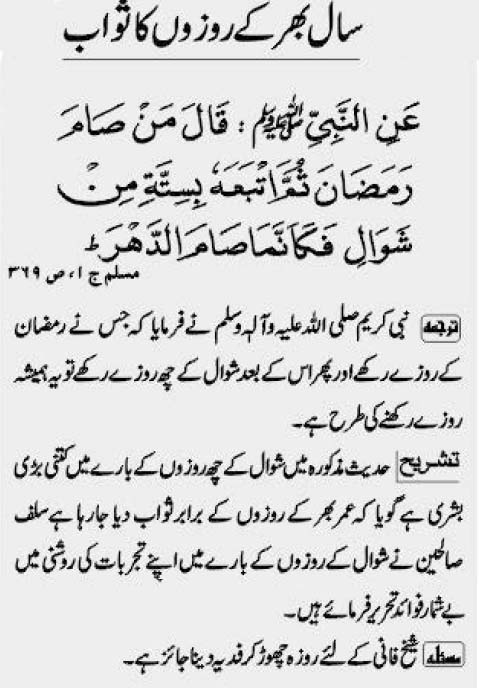 سال بھر کے روزوں کا ثواب
عَنِ النَّبِيِّ ﷺ : قَالَ مَنْ صَامَ
رَمَضَانَ ثُمَّ اَتْبَعَهٗ بِسِتَّةٍ مِنْ
شَوَالِ فَكَاَنَّمَا صَامَ الدَّهْرَ ؕ
مسلم ج ۱، ص ۳۶۹
ترجمہ نبی کریم صلی اللہ علیہ و آلہ وسلم نے فرمایا کہ جس نے رمضان
کے روزے رکھے اور پھر اس کے بعد شوال کے چھ روزے رکھے تو یہ ہمیشہ
روزے رکھنے کی طرح ہے۔
تشریح حدیث مذکورہ میں شوال کے چھ روزوں کے بارے میں کتنی بڑی
بشری ہے گویا کہ عمر بھر کے روزوں کے برابر ثواب دیا جا رہا ہے سلف
صالحین نے شوال کے روزوں کے بارے میں اپنے تجربات کی روشنی میں
بے شمار فوائد تحریر فرمائے ہیں۔
مسئلہ شیخ فانی کے لئے روزہ چھوڑ کر فدیہ دینا جائز ہے۔